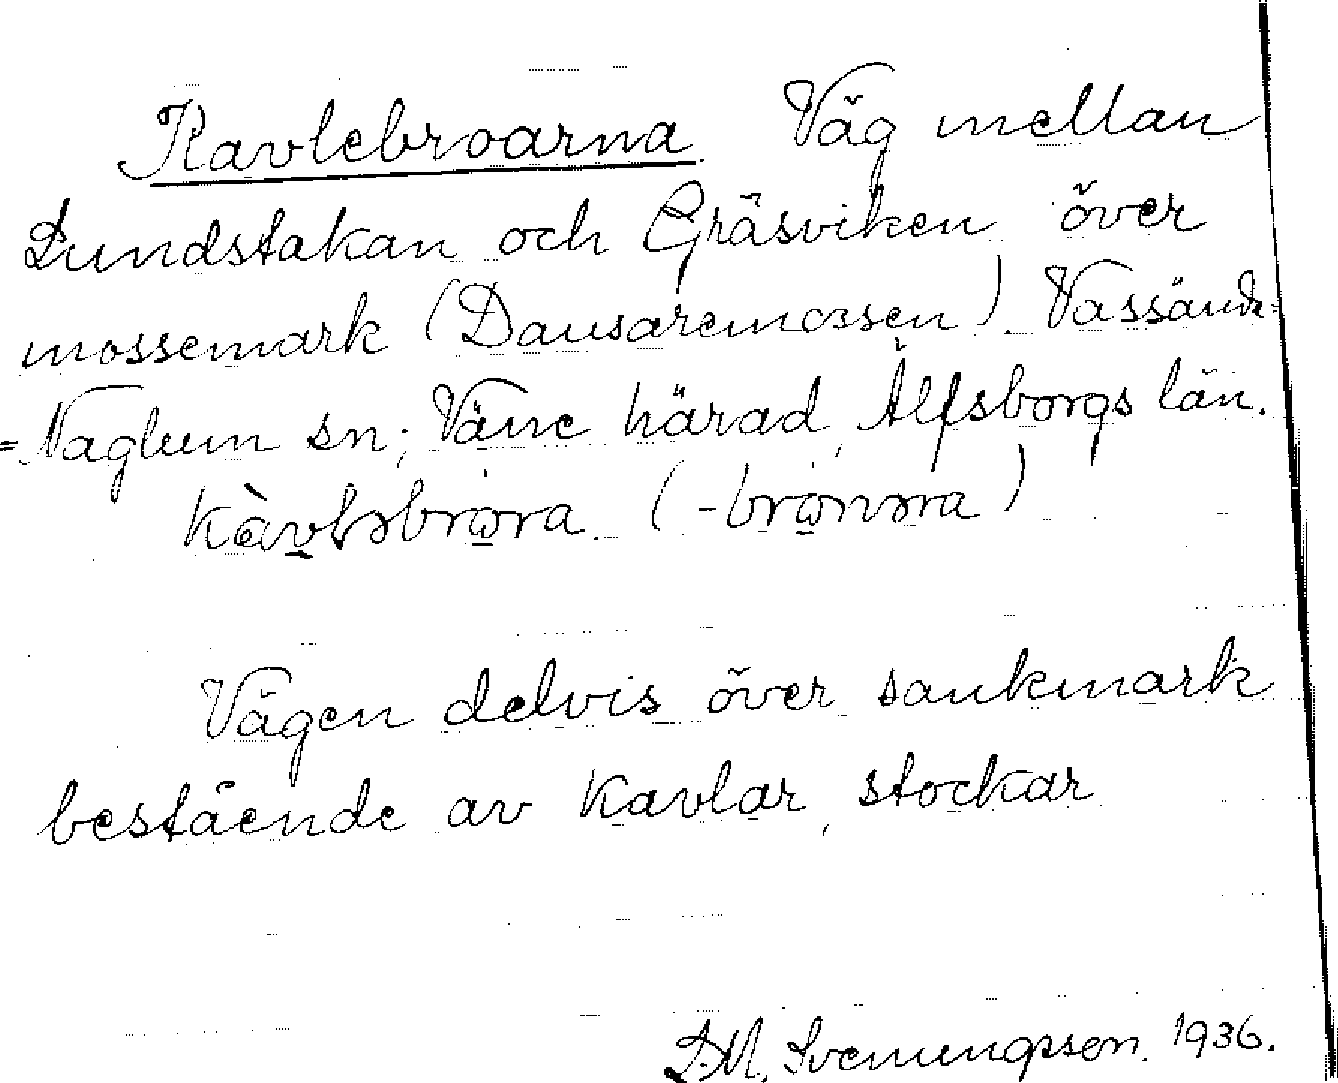 Kavlebroarna. Väg mellan
Lundstakan och Gräsviken över
mossemark (Dausaremossen). Vassände=
=Naglum sn; Väne härad, Älfsborgs län.
(
Vägen delvis över sankmark
bestående av kavlar, stockar
D.M. Svenungsson. 1936.